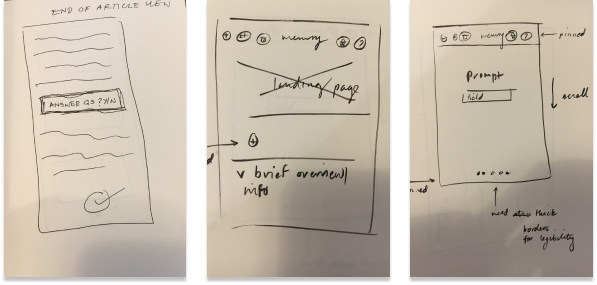 END OF ARTICLE VIEW
ANSWER QS? Y/N
memory
landing page
v brief overview/
info
memory
pinned
Prompt
field
scroll
need
thick
borders
for legibility